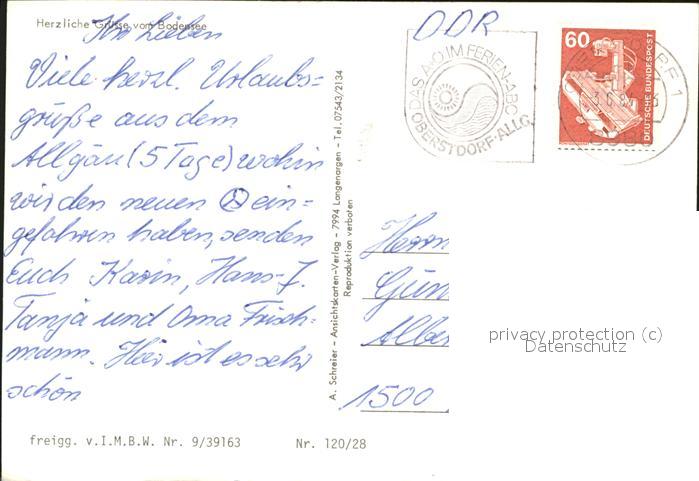 Herzliche Grüsse vom Bodensee
Ihr Lieben
Viele herzl. Urlaubs=
grüße aus dem
Allgäu (5 Tage) wohin
wir den neuen ein=
gefahren haben, senden
Euch Karin, Hans-J.
Tanja und Oma Frisch=
mann. Hier ist es sehr
schön
freigg. v.I.M.B.W. Nr. 9/39163
Nr. 120/28
A. Schreier - Ansichtskarten-Verlag - 7994 Langenargen - Tel. 07543/2134
Reproduktion verboten
DDR
DAS A+O IM FERIEN-ABC
OBERSTDORF-ALLG.
60
DEUTSCHE BUNDESPOST
Herrn
Gün
Alber
1500
privacy protection (c)
Datenschutz